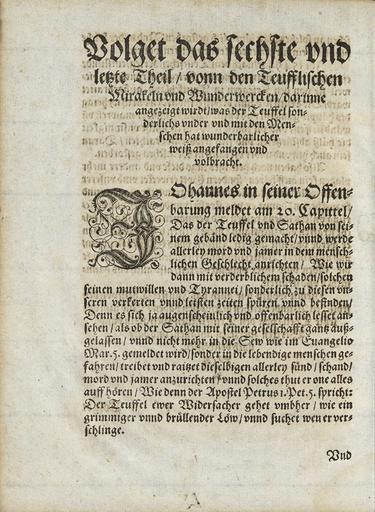 Volget das sechste vnd
letzte Theil / vonn den Teufflischen
Mirakeln vnd Wunderwercken / darinne
angezeigt wirdt / was der Teuffel son-
derlichs vnder vnd mit den Men-
schen hat wunderbarlicher
weiß angefangen vnd
volbracht.
JOhannes in seiner Offen-
barung meldet am 20. Capittel /
Das der Teuffel vnd Sathan von sei-
nem gebänd ledig gemacht / vnnd werde
allerley mord vnd jamer in dem mensch-
lichen Geschlecht anrichten / Wie wir
dann mit verderblichem schaden / solchen
seinen mutwillen vnd Tyrannei / sonderlich zu diesen vn-
seren verkerten vnnd letsten zeiten spüren vnnd befinden /
Denn es sich ja augenscheinlich vnd offenbarlich lesset an-
sehen / als ob der Sathan mit seiner gesellschafft gantz auß-
gelassen / vnnd nicht mehr in die Sew wie im Euangelio
Mar. 5. gemeldet wird / sonder in die lebendige menschen ge-
fahren / treibet vnd raitzet dieselbigen allerley sünd / schand /
mord vnd jamer anzurichten / vnnd solches thut er one alles
auff hören / Wie denn der Apostel Petrus 1. Pet. 5. spricht:
Der Teuffel ewer Widersacher gehet vmbher / wie ein
grimmiger vnnd brüllender Löw / vnnd suchet wen er ver-
schlinge.
Vnd